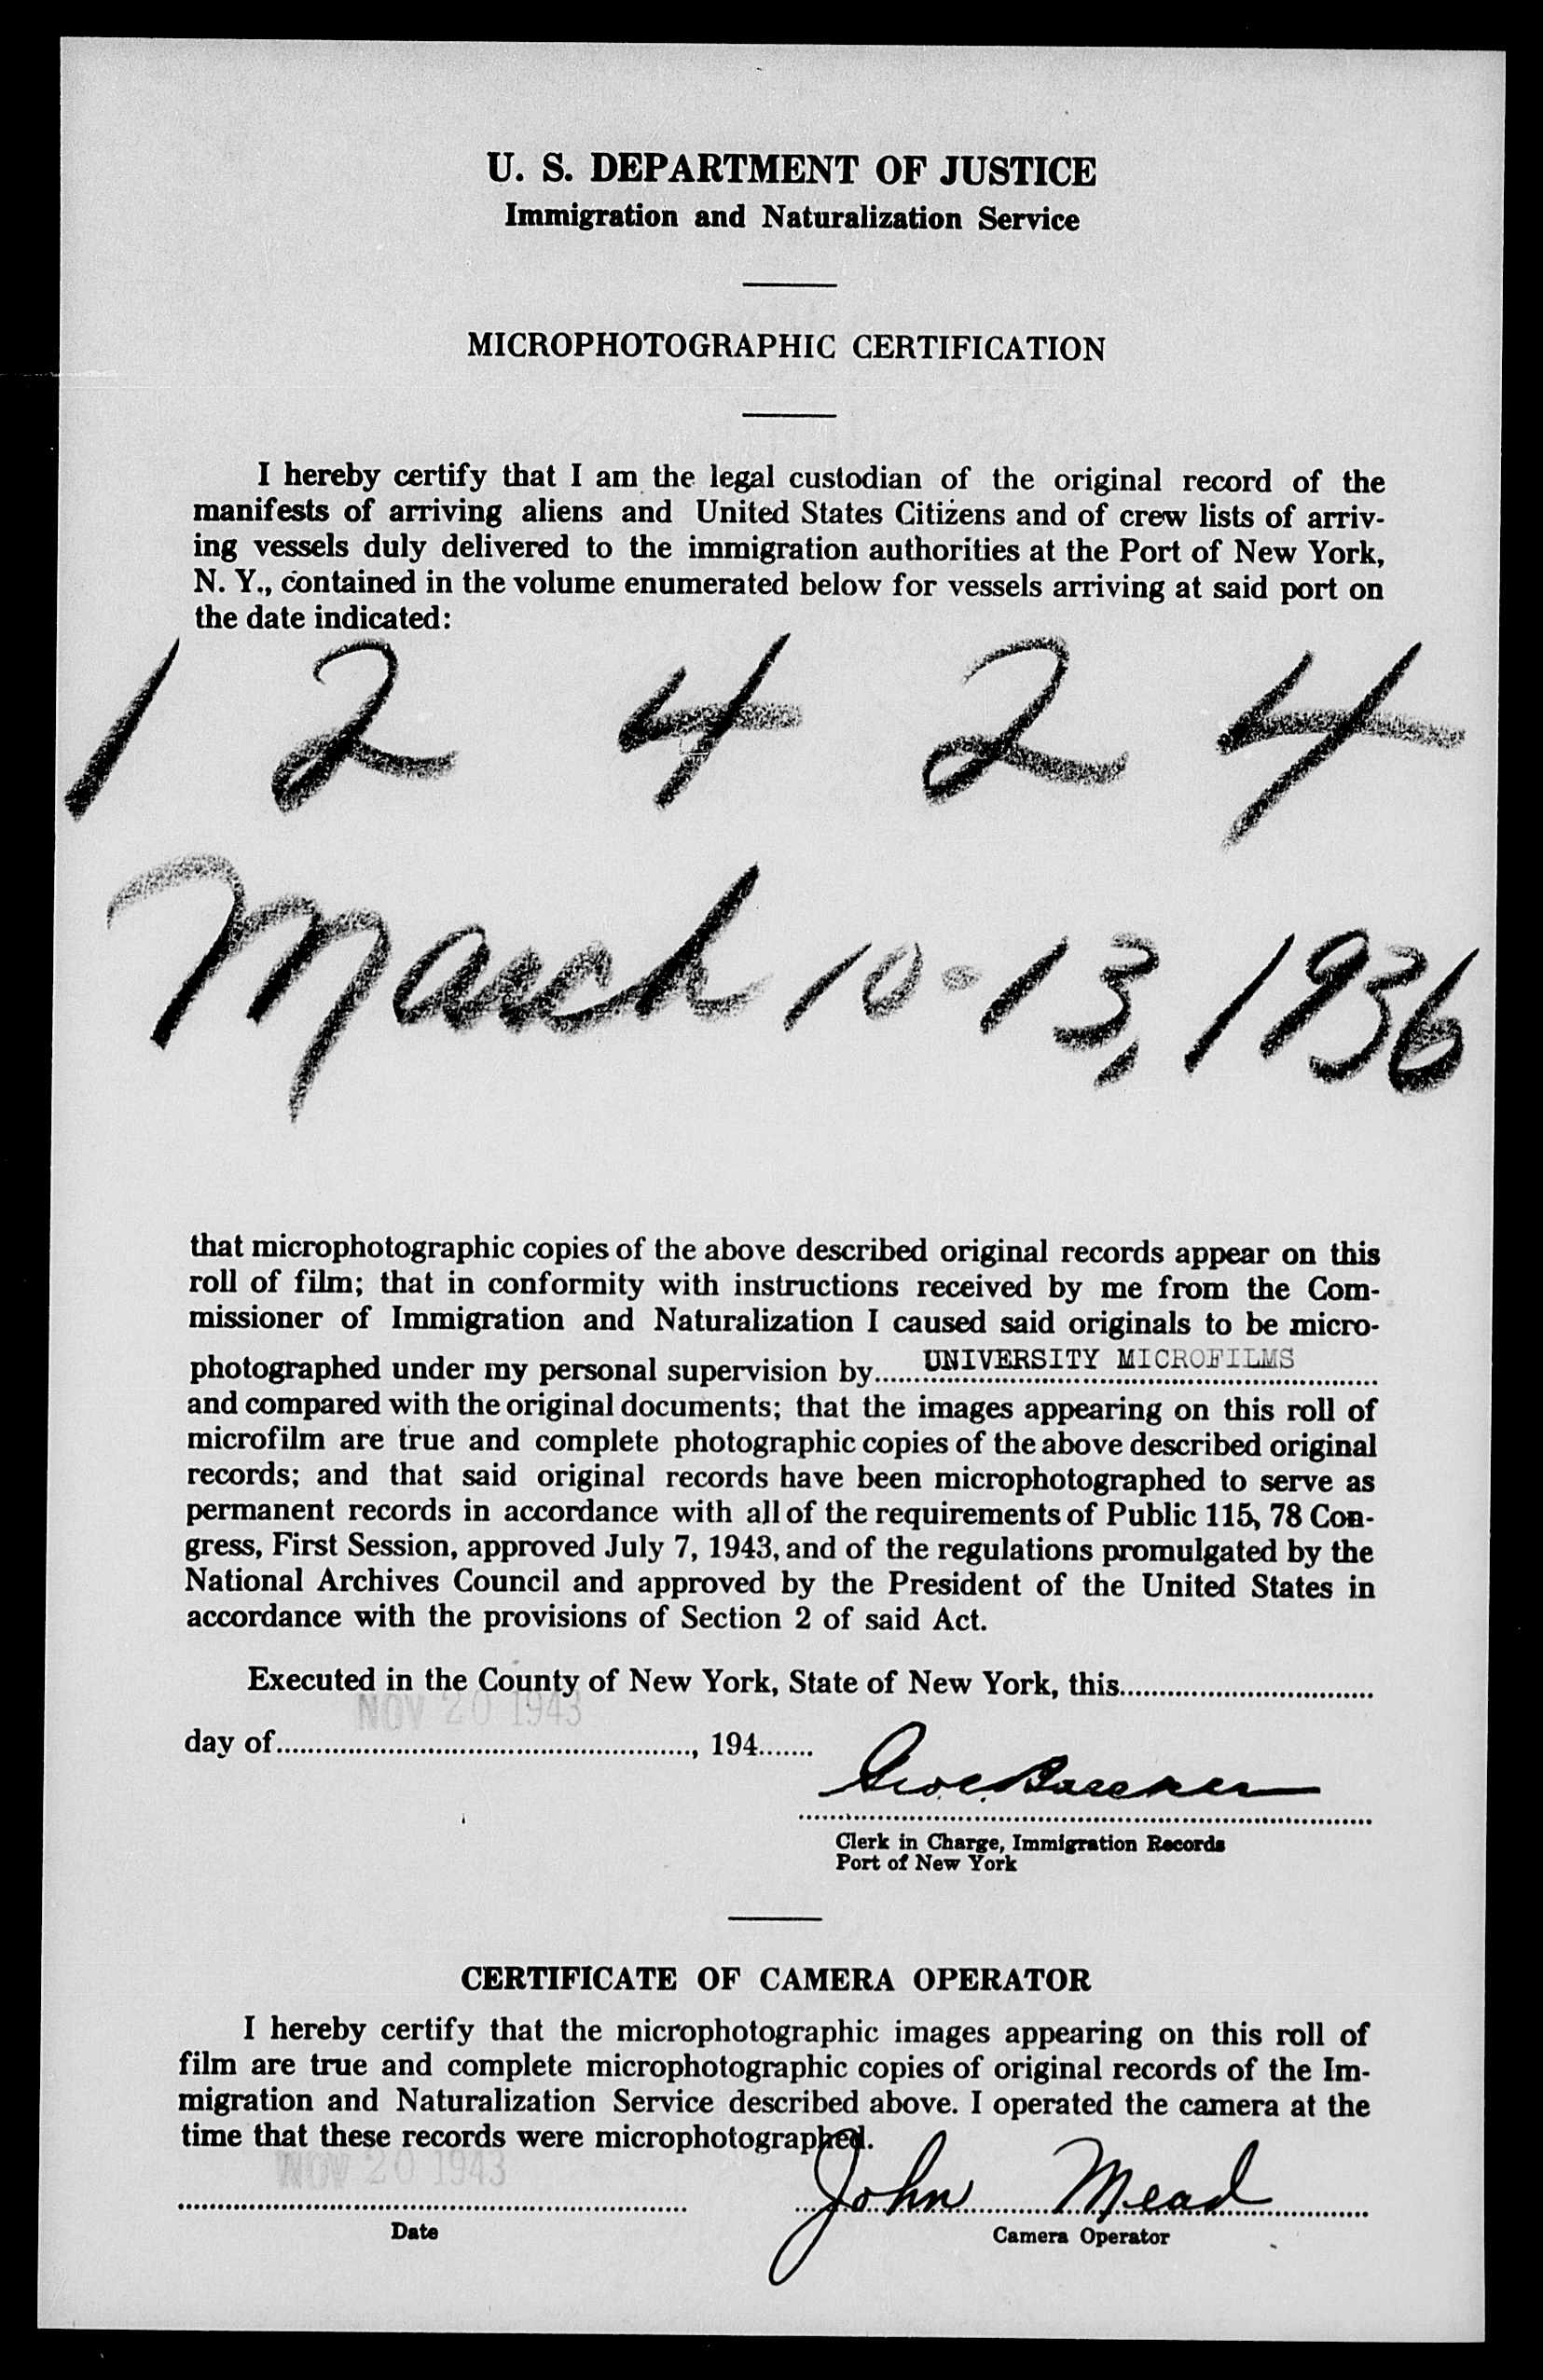 U. S. DEPARTMENT OF JUSTICE
Immigration and Naturalization Service
MICROPHOTOGRAPHIC CERTIFICATION
I hereby certify that I am the legal custodian of the original record of the
manifests of arriving aliens and United States Citizens and of crew lists of arriv-
ing vessels duly delivered to the immigration authorities at the Port of New York,
N. Y., contained in the volume enumerated below for vessels arriving at said port on
the date indicated:
1 2 4 2 4
March 10-13, 1936
that microphotographic copies of the above described original records appear on this
roll of film; that in conformity with instructions received by me from the Com-
missioner of Immigration and Naturalization I caused said originals to be micro-
photographed under my personal supervision by UNIVERSITY MICROFILMS
and compared with the original documents; that the images appearing on this roll of
microfilm are true and complete photographic copies of the above described original
records; and that said original records have been microphotographed to serve as
permanent records in accordance with all of the requirements of Public 115, 78 Con-
gress, First Session, approved July 7, 1943, and of the regulations promulgated by the
National Archives Council and approved by the President of the United States in
accordance with the provisions of Section 2 of said Act.
Executed in the County of New York, State of New York, this
NOV 20 1943
day of , 194
Clerk in Charge, Immigration Records
Port of New York
CERTIFICATE OF CAMERA OPERATOR
I hereby certify that the microphotographic images appearing on this roll of
film are true and complete microphotographic copies of original records of the Im-
migration and Naturalization Service described above. I operated the camera at the
time that these records were microphotographed.
NOV 20 1943 John Mead
Date Camera Operator